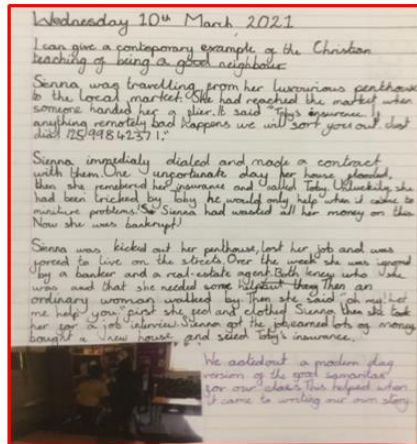 Wednesday 10th March, 2021
I can give a contemporary example of the Christian
teaching of being a good neighbour
Sienna was travelling from her luxurious penthouse
to the local market. She had reached the market when
someone handed her a flier. It said "Toby's insurence if
anything remotely bad happens we will sort you out. Just
dial: 25998 42371."
Sienna immediatly dialed and made a contract
with them. One unfortunate day her house flooded,
then she remebered her insurance and called Toby. Unluckily she
had been tricked by Toby he would only help when it came to
miniture problems! So Sienna had wasted all her money on this
Now she was bankrupt!
Sienna was kicked out her penthouse, lost her job and was
forced to live on the streets. Over the week she was ignored
by a banker and a real-estate agent. Both knew who she
was and that she needed some help Then an
ordinary woman walked by. Then she said "oh my! Let
me help you," first she feed and clothed Sienna then she took
her for a job interview. Sienna got the job, earned lots of money
bought a new house and sued Toby's insurance.
We acted out a modern day
version of the good samaritan
for our class. This helped when
it came to writing our own story